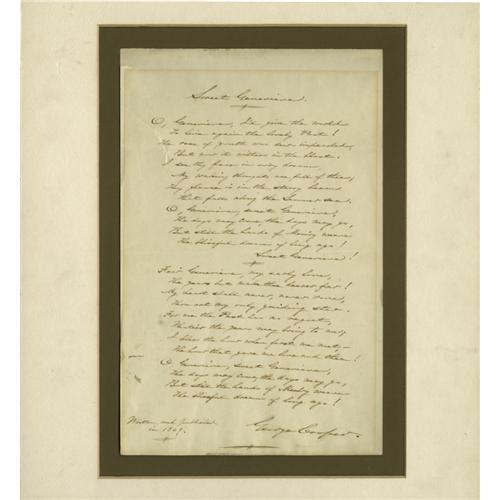 Sweet Genevieve.
O, Genevieve, I'd give the world
To live again the lovely Past!
The rose of youth was dew-impearled,
But now it withers in the blast.
I see thy face in every dream,
My waking thoughts are full of thee,
Thy glance is in the starry beam
That falls along the Summer sea.
O, Genevieve, sweet Genevieve,
The days may come, the days may go,
But still the hands of Mem'ry weave
The blissful dreams of long ago!
Sweet Genevieve!
Fair Genevieve, my early love,
The years but make thee dearer far!
My heart shall never, never rove,
Thou art my only guiding star.
For me the Past has no regret,
Whate'er the years may bring to me,
I bless the hour when first we met,—
The hour that gave me love and thee!
O, Genevieve, sweet Genevieve,
The days may come, the days may go,
But still the hands of Mem'ry weave
The blissful dreams of long ago!
Written and published
in 1869.
George Cooper.